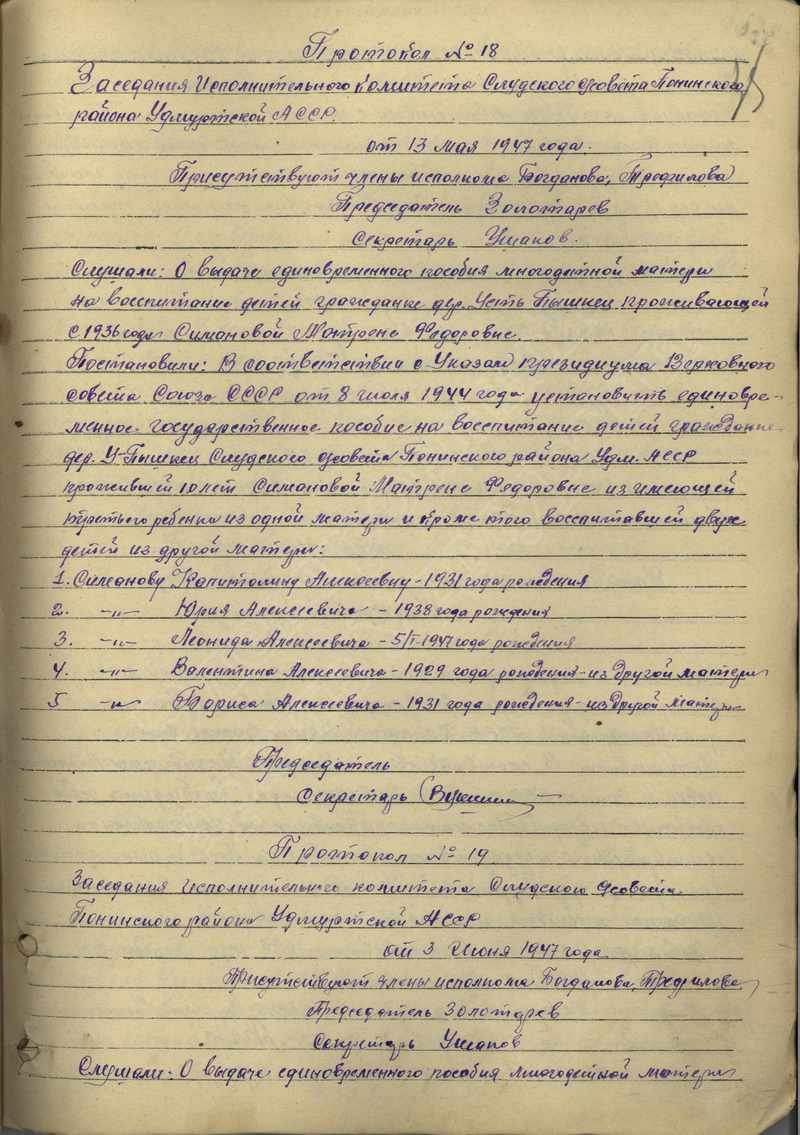 Протокол № 18
Заседания Исполнительного комитета Слудского с/совета Понинского
района Удмуртской АССР.
от 13 мая 1947 года.
Присутствуют члены исполкома Богданова, Трефилова
Председатель Золотарев
Секретарь Ушаков.
Слушали: О выдаче единовременного пособия многодетной матери
на воспитание детей гражданке дер. Усть Пышкец проживающей
с 1936 года Симановой Матрене Федоровне.
Постановили: В соответствии с Указам президиума Верховного
совета Союза СССР от 8 июля 1944 года установить единовре-
менное государственное пособие на воспитание детей гражданке
дер. У-Пышкец Слудского с/совета Понинского района Удм. АССР
прожившей 10 лет Симановой Матрене Федоровне из имеющей
третьего ребенка из одной матери и кроме того воспитавшей двух
детей из другой матери:
1. Симанову Капитолину Алексеевну - 1931 года рождения
2. -"- Юрия Алексеевича - 1938 года рождения
3. -"- Леонида Алексеевича - 5/I-1947 года рождения
4. -"- Валентина Алексеевича - 1929 года рождения - из другой матери
5 -"- Бориса Алексеевича - 1931 года рождения - из другой матери
Председатель
Секретарь
Протокол № 19
Заседания Исполнительного комитета Слудского с/совета
Понинского района Удмуртской АССР
от 3 Июня 1947 года.
Присутствуют члены исполкома Богданова, Трефилова
Председатель Золотарев
Секретарь Ушаков
Слушали: О выдаче единовременного пособия многодетной матери